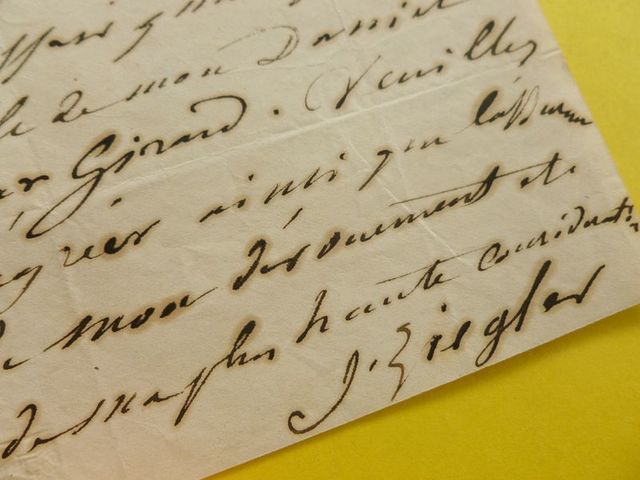 de mon Daniel
par Girard. Veuillez
agréer ainsi que
de mon dévouement et
de ma plus haute considérat.n
J. Ziegler